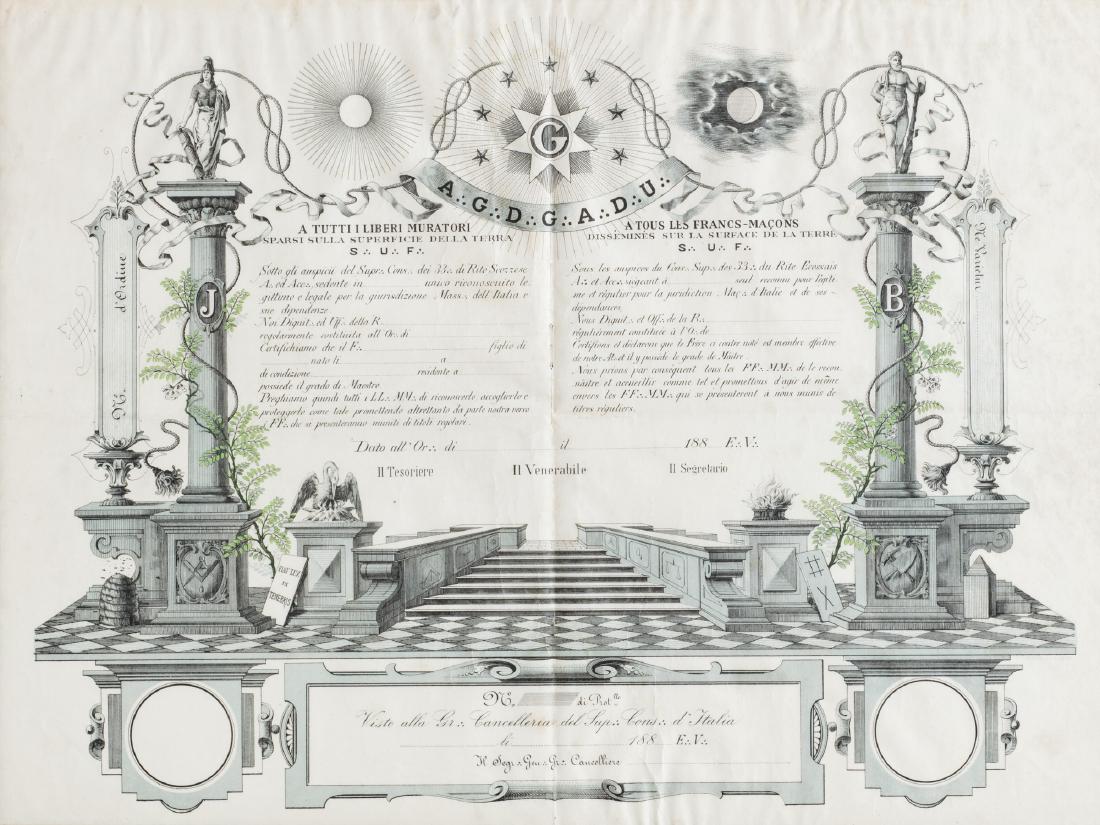 G
A∴ G∴ D∴ G∴ A∴ D∴ U∴
A TUTTI I LIBERI MURATORI
SPARSI SULLA SUPERFICIE DELLA TERRA
S∴ U∴ F∴
Sotto gli auspicii del Supr∴ Cons∴ dei 33∴ di Rito Scozzese
A∴ ed Acc∴ sedente in unico riconosciuto le
gittimo e legale per la giurisdizione Mass∴ dell'Italia e
sue dipendenze
Noi Dignit∴ ed Uff∴ della R
regolarmente costituita all'Or∴ di
Certifichiamo che il F∴ figlio di
nato li a
di condizione residente a
possiede il grado di Maestro.
Preghiamo quindi tutti i LL∴ MM∴ di riconoscerlo accoglierlo e
proteggerlo come tale promettendo altrettanto da parte nostra verso
i FF∴ che si presenteranno muniti di titoli regolari.
A TOUS LES FRANCS-MAÇONS
DISSÉMINÉS SUR LA SURFACE DE LA TERRE
S∴ U∴ F∴
Sous les auspices du Cons∴ Sup∴ des 33∴ du Rite Ecossais
A∴ et Acc∴ siégeant à seul reconnu pour légiti
me et régulier pour la juridiction Maç∴ d'Italie et de ses
dépendances.
Nous Dignit∴ et Off∴ de la R∴
régulièrement constituée à l'O∴ de
Certifions et déclarons que le Frère ci contre noté est membre effective
de notre At∴ et il y possède le grade de Maître.
Nous prions par conséquent tous les FF∴ MM∴ de le recon
naître et accueillir comme tel et promettons d'agir de même
envers les FF∴ MM∴ qui se présenteront à nous munis de
titres réguliers.
J
B
N. d'Ordine
Ne Varietur
Dato all'Or∴ di il 188 E∴ V∴
Il Tesoriere Il Venerabile Il Segretario
IN
TENEBRIS
N. di Prot∴llo
Visto alla Gr∴ Cancelleria del Sup∴ Cons∴ d'Italia
li 188 E∴ V∴
Il Segr∴ Gen∴ Gr∴ Cancelliere